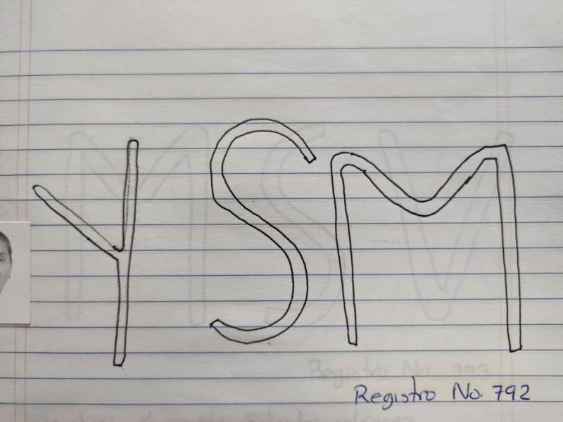 YSM
Registro No. 792